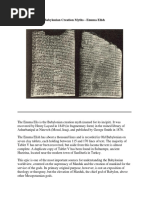 Babylonian Creation Myths - Enuma Elish
The Enuma Elis is the Babylonian creation mythos (named for its incipit). It was
recovered by Henry Layard in 1849 (in fragmentary form) in the ruined library of
Ashurbanipal at Nineveh (Mosul, Iraq), and published by George Smith in 1876.
The Enuma Elish has about a thousand lines and is recorded in Old Babylonian
on seven clay tablets, each holding between 115 and 170 lines of text. The majority
of Tablet V has never been recovered, but aside from this lacuna the text is almost
complete. A duplicate copy of Tablet V has been found in Sultantepe, ancient
Huzirina, located near the modern town of Sanliurfa in Turkey.
This epic is one of the most important sources for understanding the Babylonian
worldview, centered on the supremacy of Marduk and the creation of humankind for
the service of the gods. Its primary original purpose, however, is not an exposition of
theology or theogony, but the elevation of Marduk, the chief god of Babylon, above
other Mesopotamian gods.